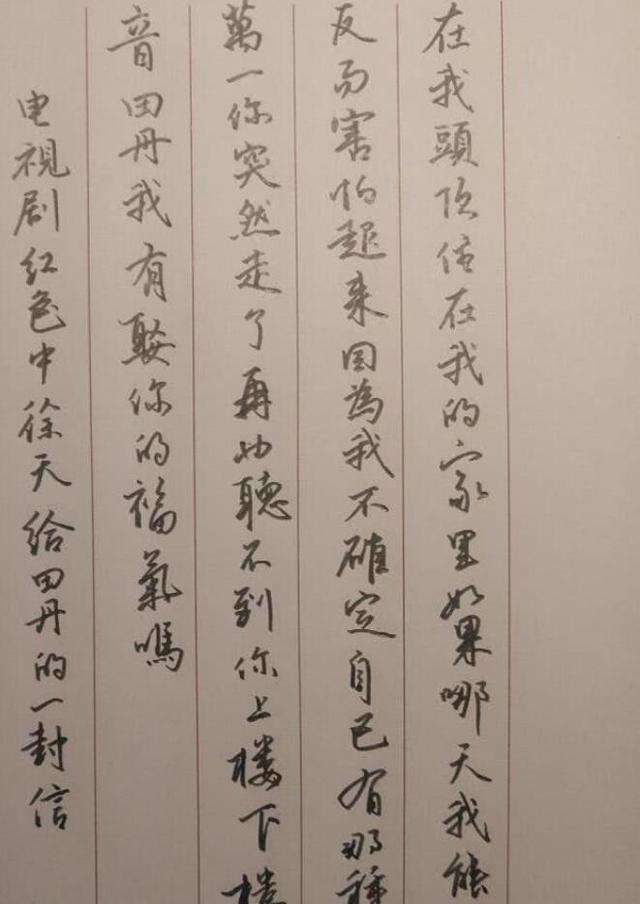 在我頭顶住在我的家里如果哪天我能
反而害怕起来因為我不確定自己有那種
萬一你突然走了再也聽不到你上楼下楼
音田丹我有娶你的福氣嗎
电視剧红色中徐天给田丹的一封信